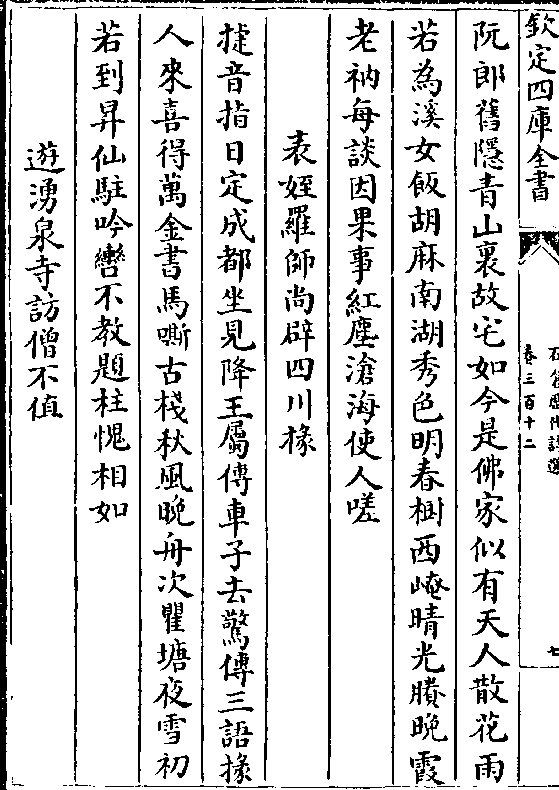 欽定四庫全書
卷三百十二
七
阮郎舊隱青山裏故宅如今是佛家似有天人散花雨
若為溪女飯胡麻南湖秀色明春樹西崦晴光賸晚霞
老衲每談因果事紅塵滄海使人嗟
表姪羅師尚辟四川掾
捷音指日定成都坐見降王屬傳車子去驚傳三語掾
人來喜得萬金書馬嘶古棧秋風晚舟次瞿塘夜雪初
若到昇仙駐吟轡不教題柱愧相如
遊湧泉寺訪僧不值